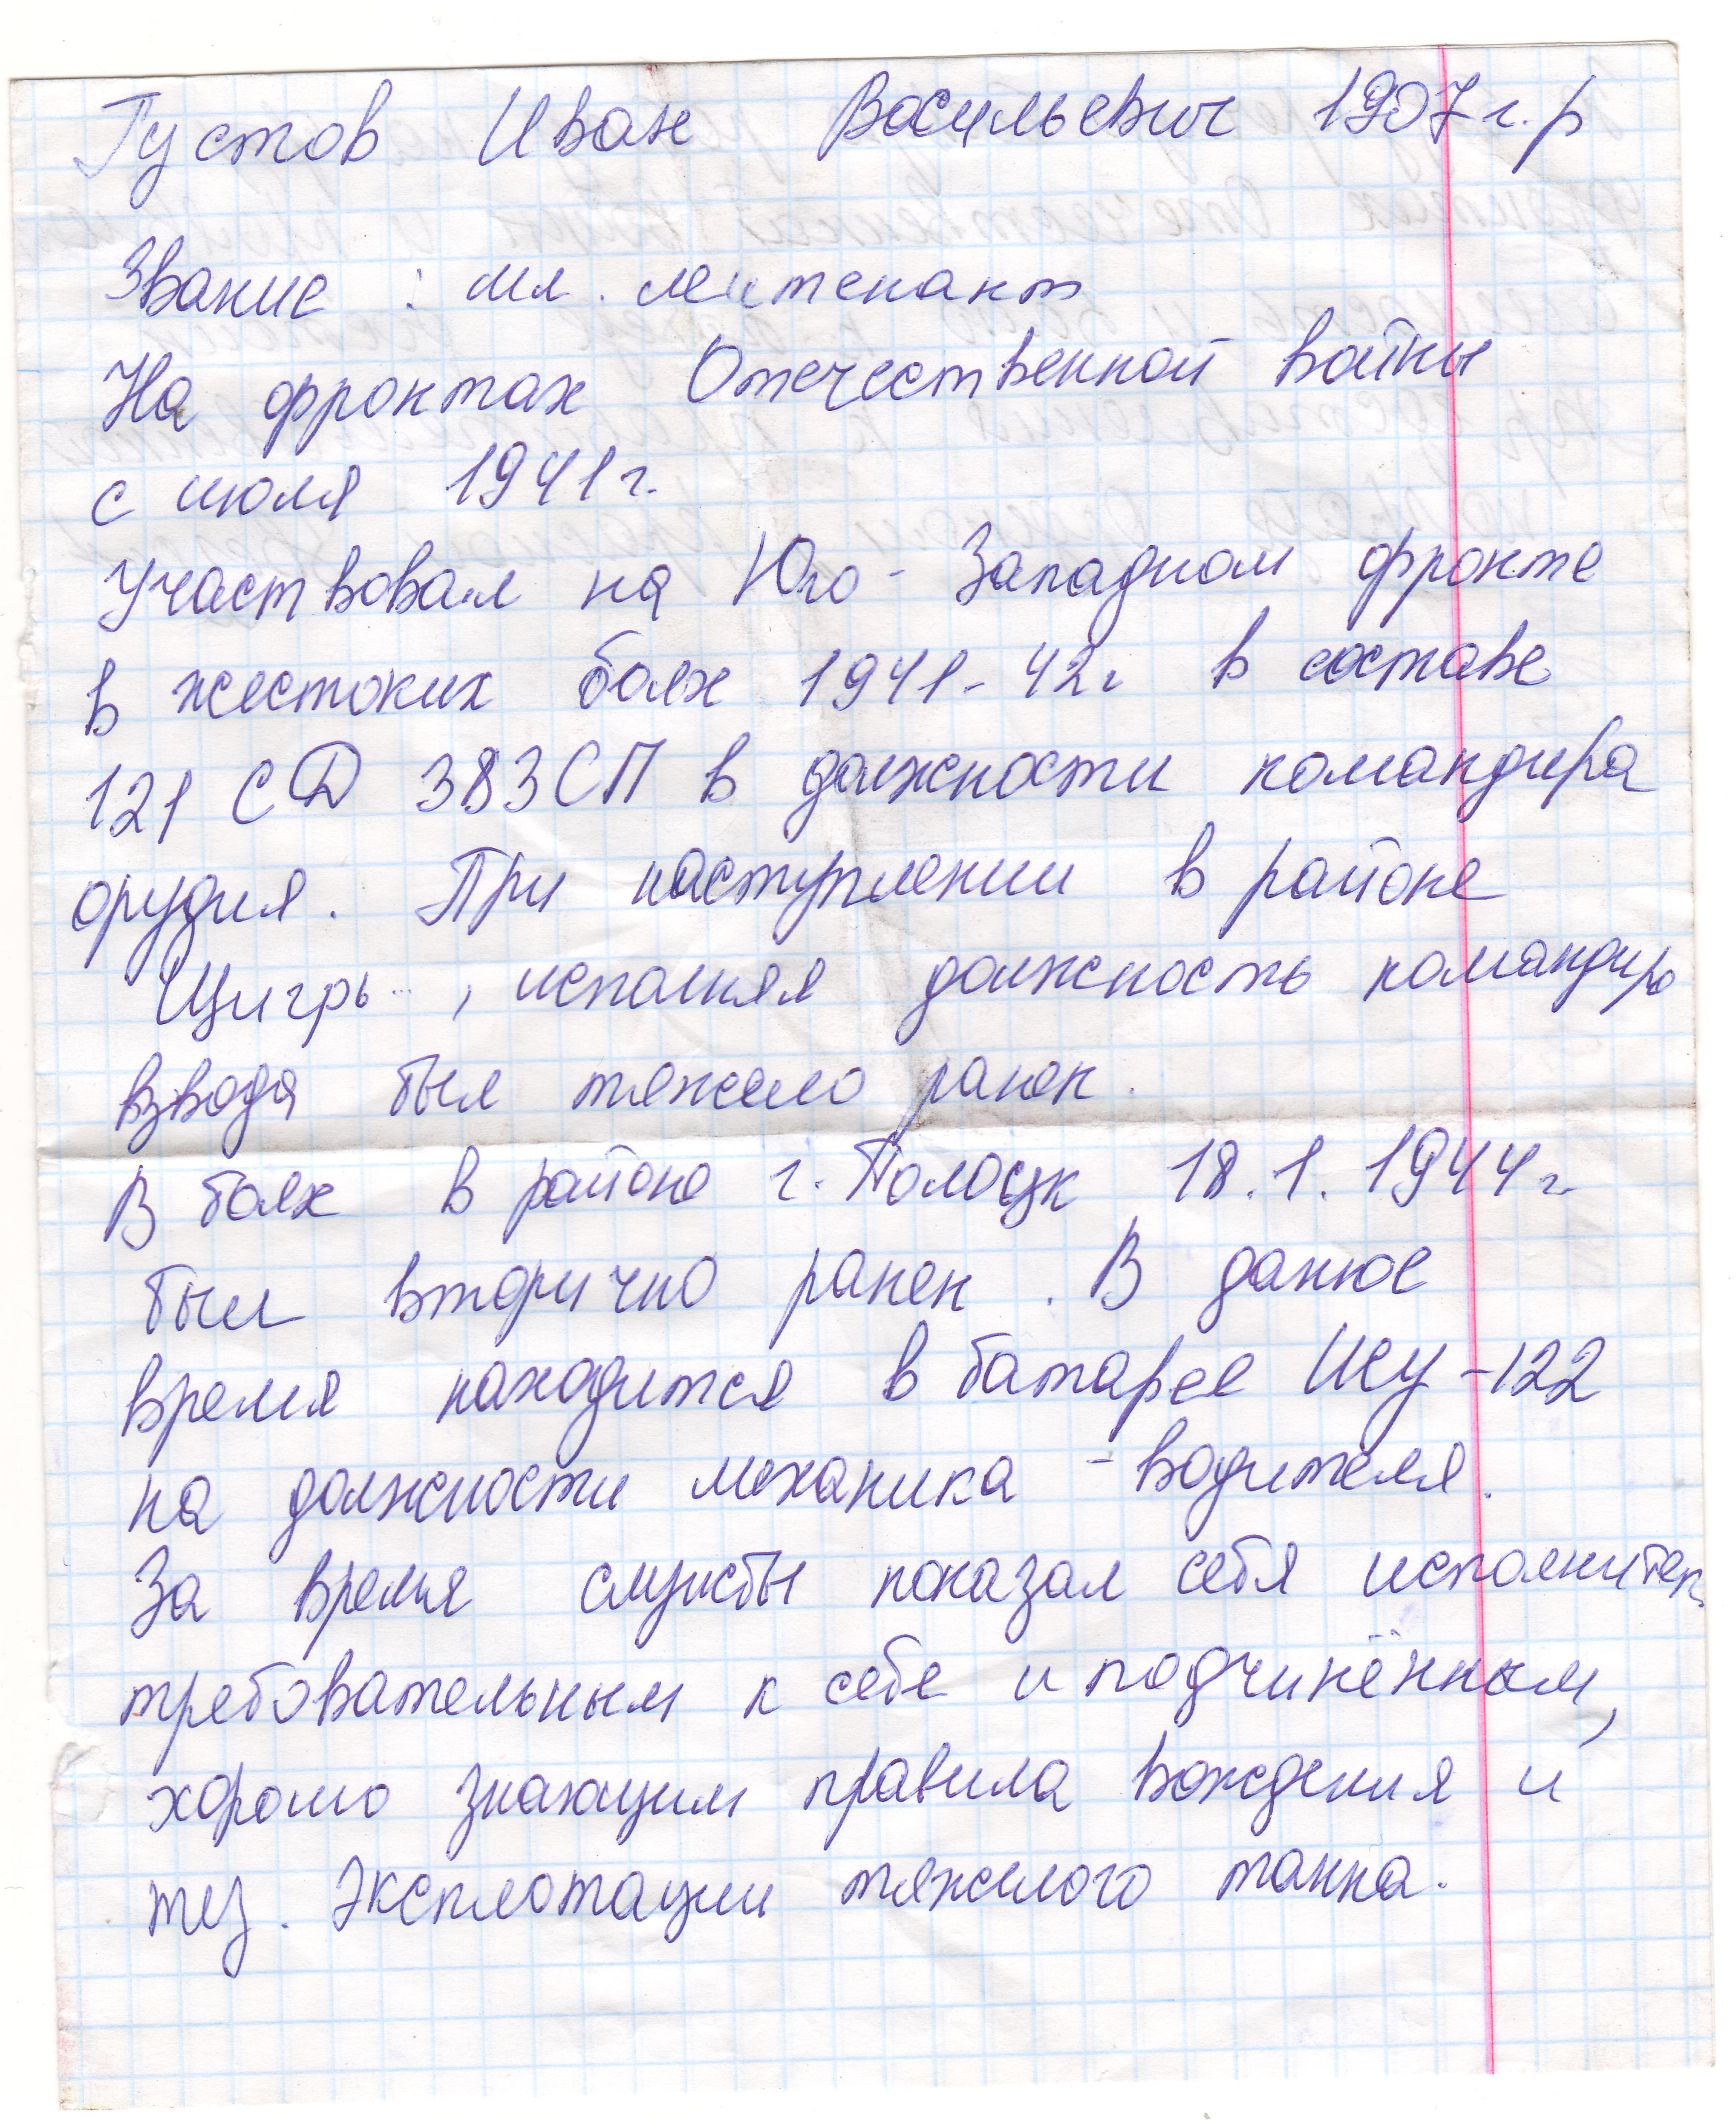 Густов Иван Васильевич 1907 г. р
Звание : мл. лейтенант
На фронтах Отечественной войны
с июля 1941 г.
Участвовал на Юго-Западном фронте
в жестоких боях 1941-42г в составе
121 СД 383 СП в должности командира
орудия. При наступлении в районе
Щигры, исполняя должность командира
взвода был тяжело ранен.
В боях в районе г. Полоцк 18.1.1944 г.
был вторично ранен. В данное
время находится в батарее ИСУ-122
на должности механика-водителя.
За время службы показал себя исполнител.
требовательным к себе и подчинённым,
хорошо знающим правила вождения и
эксплотации тяжелого танка.